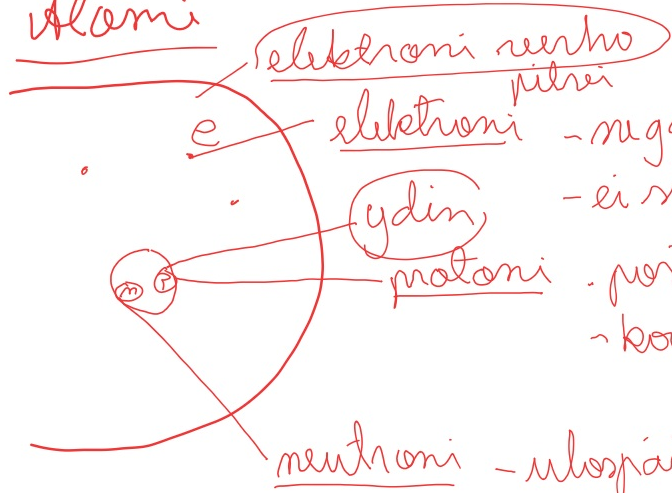 Atomi
elektroni verho
pilvi
e
elektroni - neg
- ei s
ydin
n p
protoni
- ko
neutroni - ulospä